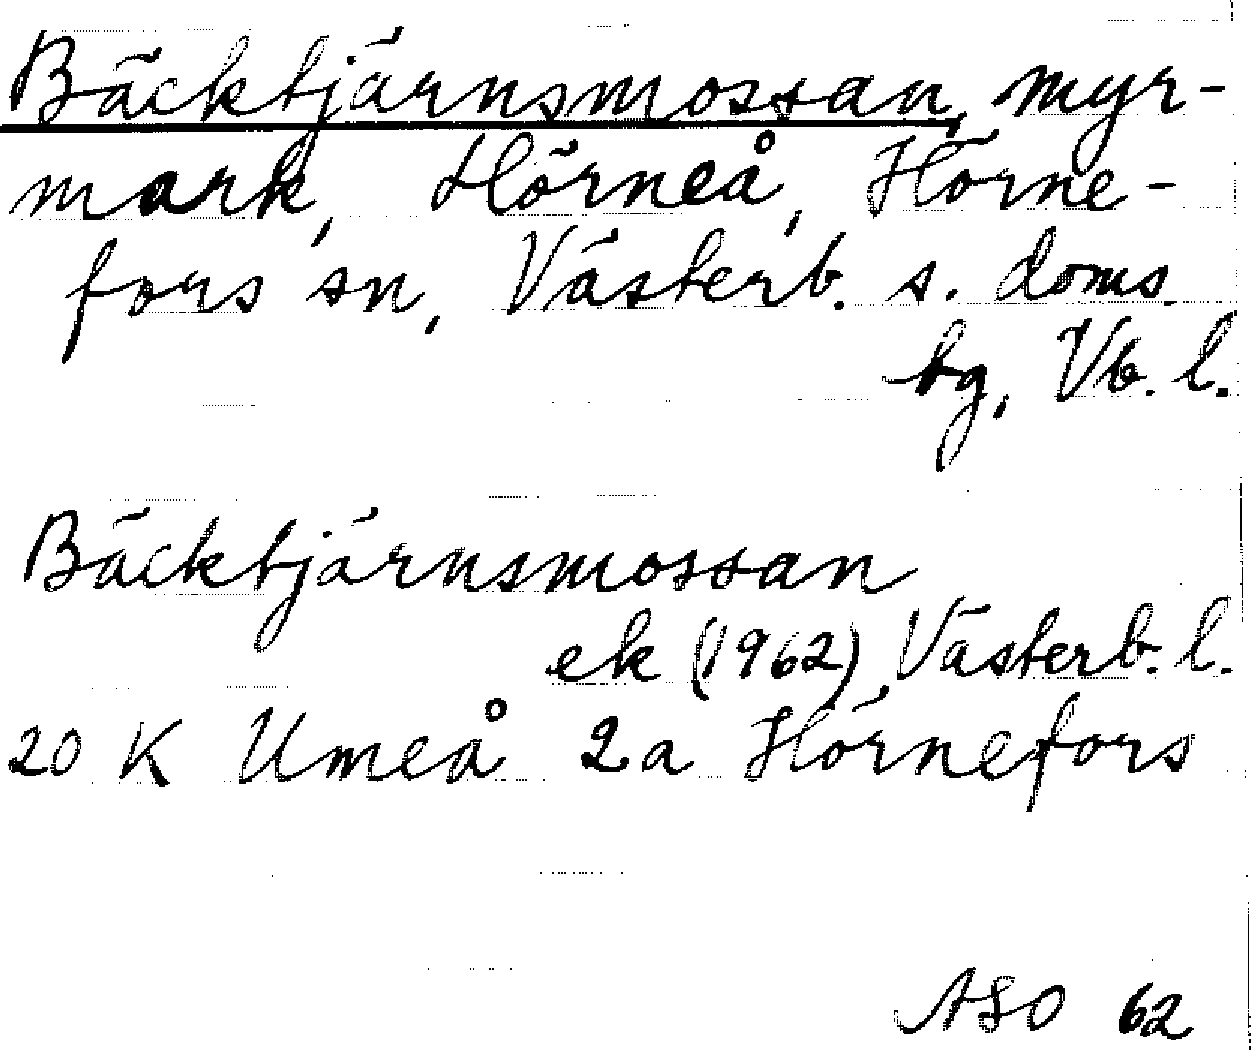 Bäcktjärnsmossan, myr-
mark, Hörneå, Hörne-
fors sn, Västerb. s. doms.
bg, Vb. l.
Bäcktjärnsmossan
ek (1962), Västerb. l.
20 K Umeå 2a Hörnefors
ASO 62